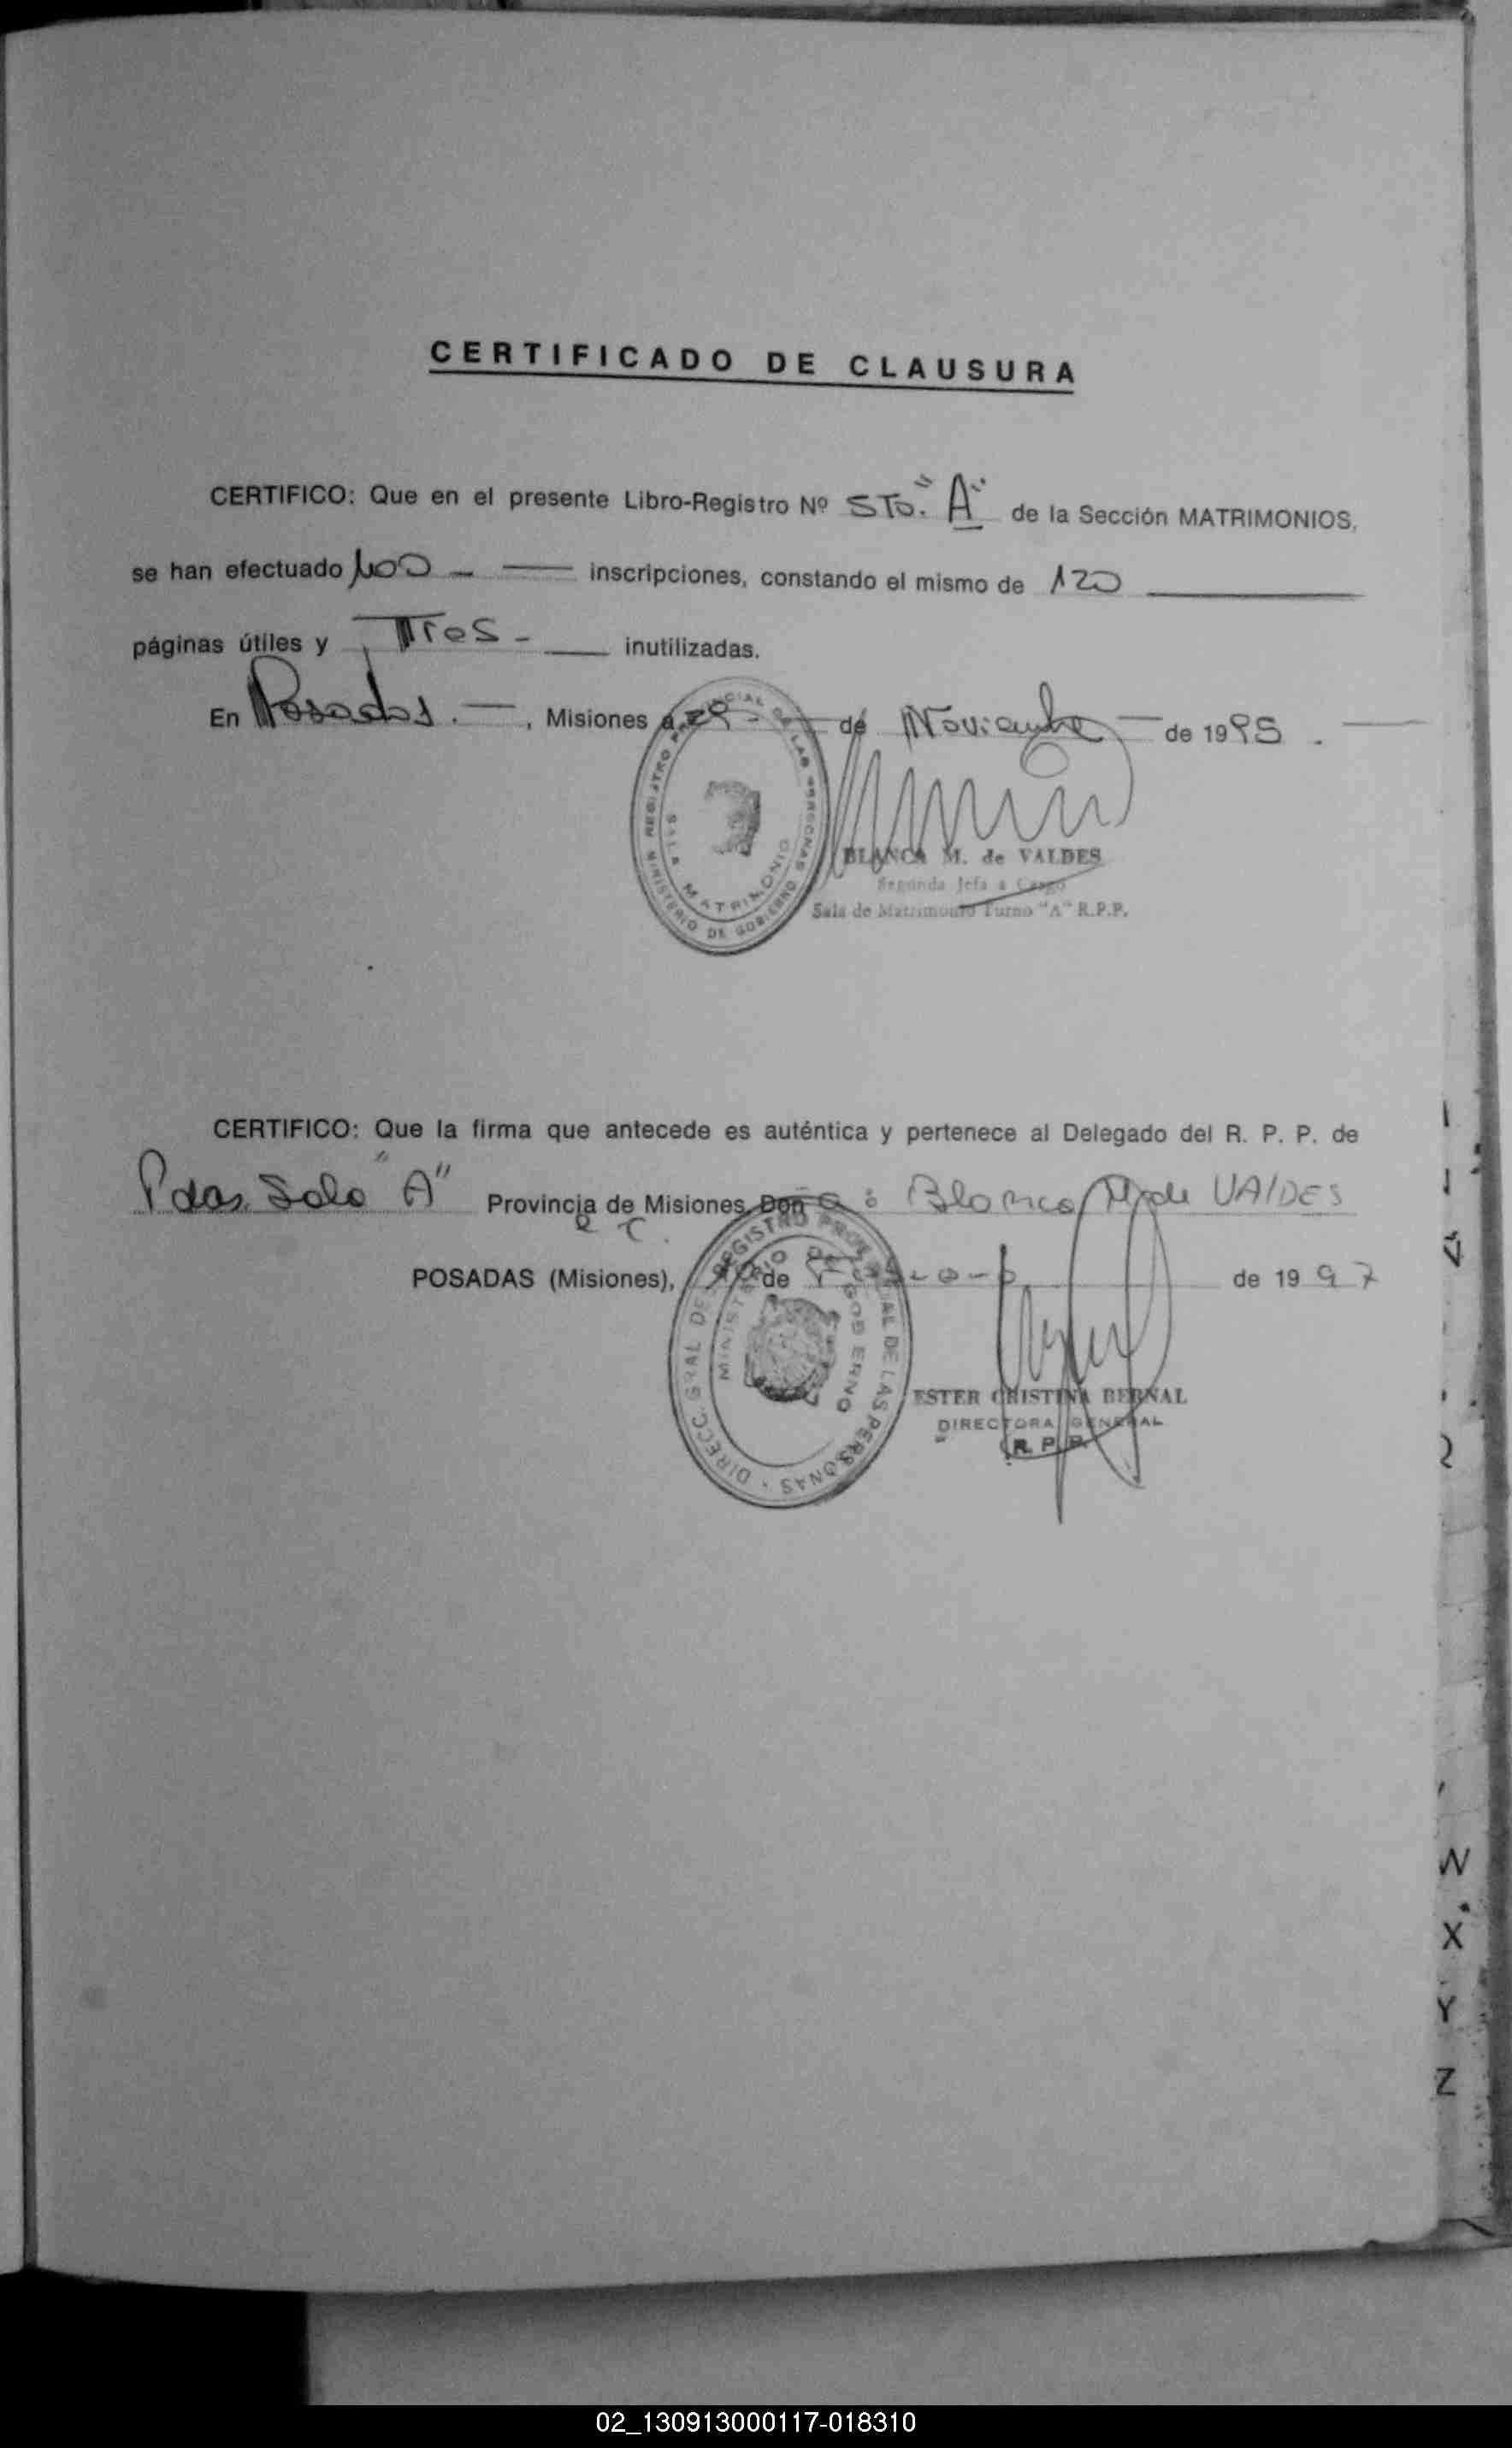 CERTIFICADO DE CLAUSURA
CERTIFICO: Que en el presente Libro-Registro Nº 5To. "A" de la Sección MATRIMONIOS,
se han efectuado 100 - — inscripciones, constando el mismo de 120
páginas útiles y Tres - — inutilizadas.
En Posadas. —, Misiones a 29 - de Noviembre — de 1995. —
REGISTRO PROVINCIAL DE LAS PERSONAS
MINISTERIO DE GOBIERNO
SALA MATRIMONIO
BLANCA M. de VALDES
Segunda Jefa a Cargo
Sala de Matrimonio Turno "A" R.P.P.
CERTIFICO: Que la firma que antecede es auténtica y pertenece al Delegado del R. P. P. de
Pdas. Sala "A" Provincia de Misiones, Doña: Blanca M. de VAlDES
POSADAS (Misiones), de de 1997
DIRECC. GRAL DEL REGISTRO PROVINCIAL DE LAS PERSONAS
MINISTERIO DE GOBIERNO
ESTER CRISTINA BERNAL
DIRECTORA GENERAL
R. P. P.
W
X
Y
Z
02_130913000117-018310